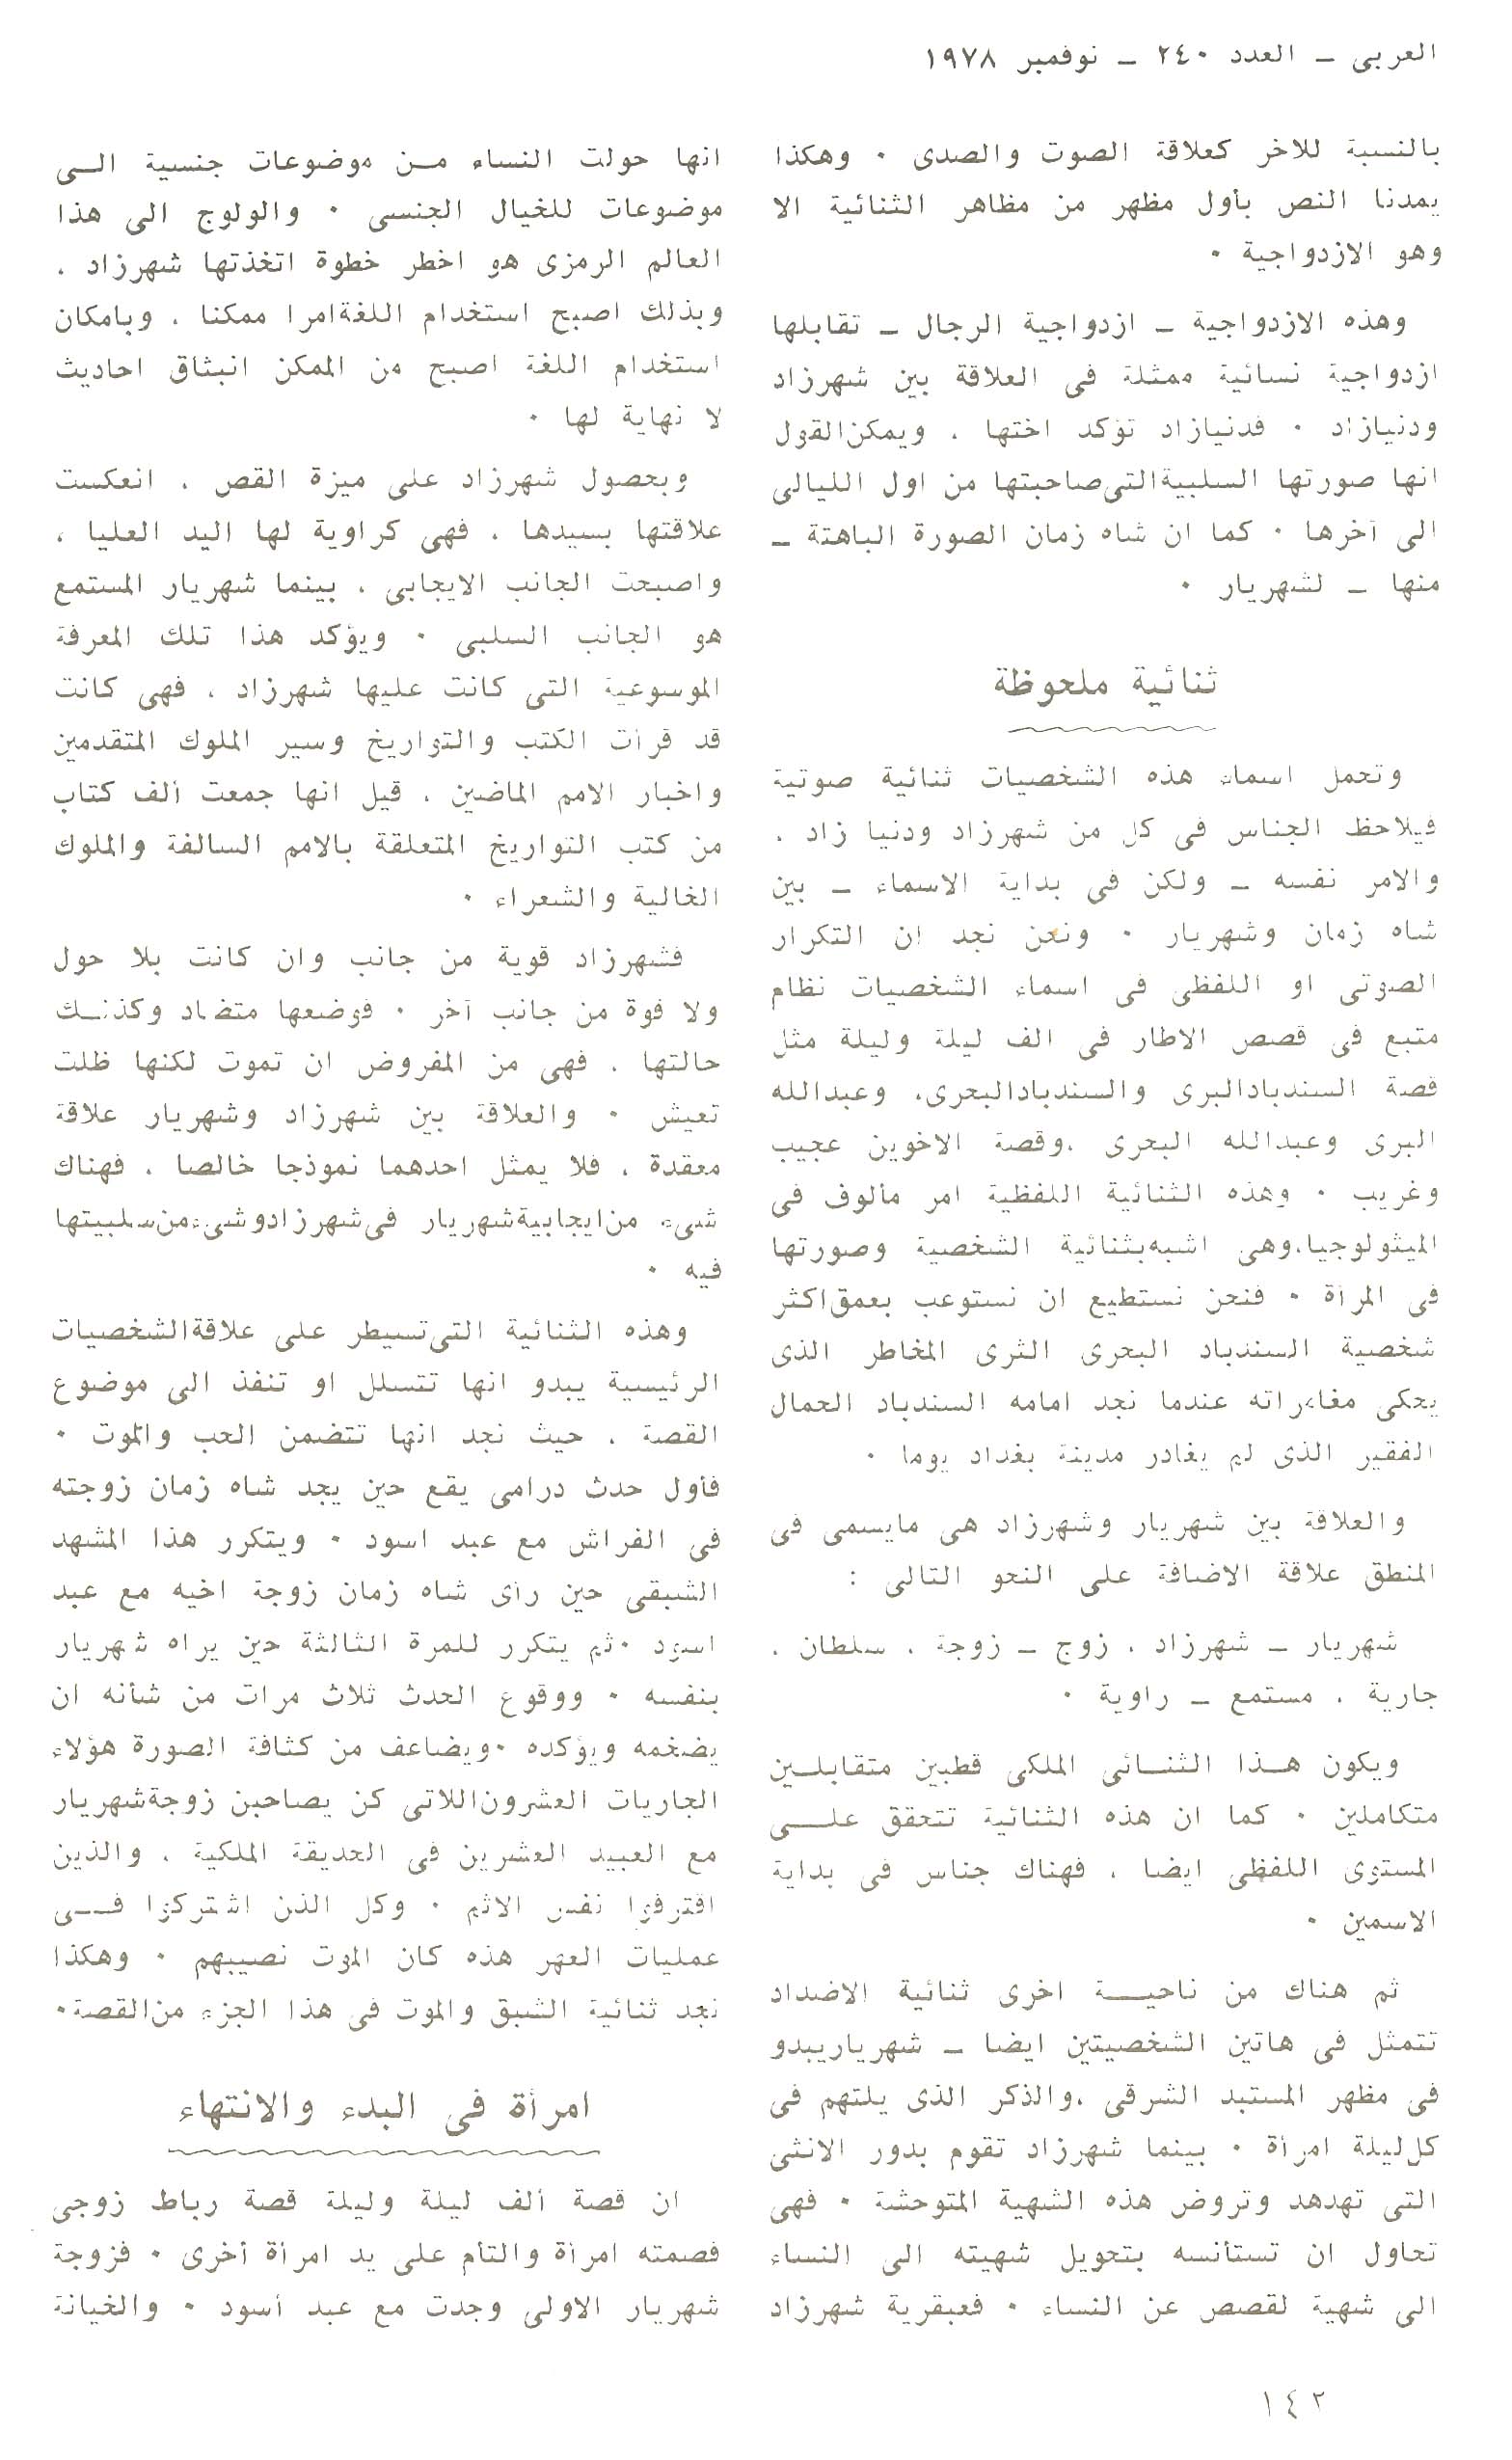 العربى ــ العدد ٢٤٠ ــ نوفمبر ١٩٧٨
بالنسبة للاخر كعلاقة الصوت والصدى ٠ وهكذا
يمدنا النص بأول مظهر من مظاهر الثنائية الا
وهو الازدواجية ٠
وهذه الازدواجية ــ ازدواجية الرجال ــ تقابلها
ازدواجية نسائية ممثلة فى العلاقة بين شهرزاد
ودنيازاد ٠ فدنيازاد تؤكد اختها ، ويمكن القول
انها صورتها السلبية التى صاحبتها من اول الليالى
الى آخرها ٠ كما ان شاه زمان الصورة الباهتة ــ
منها ــ لشهريار ٠
ثنائية ملحوظة
وتحمل اسماء هذه الشخصيات ثنائية صوتية
فيلاحظ الجناس فى كل من شهرزاد ودنيا زاد ،
والامر نفسه ــ ولكن فى بداية الاسماء ــ بين
شاه زمان وشهريار ٠ ونحن نجد ان التكرار
الصوتى او اللفظى فى اسماء الشخصيات نظام
متبع فى قصص الاطار فى الف ليلة وليلة مثل
قصة السندباد البرى والسندباد البحرى، وعبدالله
البرى وعبدالله البحرى ،وقصة الاخوين عجيب
وغريب ٠ وهذه الثنائية اللفظية امر مألوف فى
الميثولوجيا،وهى اشبه بثنائية الشخصية وصورتها
فى المرآة ٠ فنحن نستطيع ان نستوعب بعمق اكثر
شخصية السندباد البحرى الثرى المخاطر الذى
يحكى مغامراته عندما نجد امامه السندباد الحمال
الفقير الذى لم يغادر مدينة بغداد يوما ٠
والعلاقة بين شهريار وشهرزاد هى مايسمى فى
المنطق علاقة الاضافة على النحو التالى :
شهريار ــ شهرزاد ، زوج ــ زوجة ، سلطان ،
جارية ، مستمع ــ راوية ٠
ويكون هـذا الثنـائى الملكى قطبين متقابلـين
متكاملين ٠ كما ان هذه الثنائية تتحقق علـــى
المستوى اللفظى ايضا ، فهناك جناس فى بداية
الاسمين ٠
ثم هناك من ناحيـــة اخرى ثنائية الاضداد
تتمثل فى هاتين الشخصيتين ايضا ــ شهريار يبدو
فى مظهر المستبد الشرقى ،والذكر الذى يلتهم فى
كل ليلة امرأة ٠ بينما شهرزاد تقوم بدور الانثى
التى تهدهد وتروض هذه الشهية المتوحشة ٠ فهى
تحاول ان تستأنسه بتحويل شهيته الى النساء
الى شهية لقصص عن النساء ٠ فعبقرية شهرزاد
انها حولت النساء مـن موضوعات جنسية الـى
موضوعات للخيال الجنسى ٠ والولوج الى هذا
العالم الرمزى هو اخطر خطوة اتخذتها شهرزاد ،
وبذلك اصبح استخدام اللغة امرا ممكنا ، وبامكان
استخدام اللغة اصبح من الممكن انبثاق احاديث
لا نهاية لها ٠
وبحصول شهرزاد على ميزة القص ، انعكست
علاقتها بسيدها ، فهى كراوية لها اليد العليا ،
واصبحت الجانب الايجابى ، بينما شهريار المستمع
هو الجانب السلبى ٠ ويؤكد هذا تلك المعرفة
الموسوعية التى كانت عليها شهرزاد ، فهى كانت
قد قرأت الكتب والتواريخ وسير الملوك المتقدمين
واخبار الامم الماضين ، قيل انها جمعت ألف كتاب
من كتب التواريخ المتعلقة بالامم السالفة والملوك
الخالية والشعراء ٠
فشهرزاد قوية من جانب وان كانت بلا حول
ولا قوة من جانب آخر ٠ فوضعها متضاد وكذلـك
حالتها ، فهى من المفروض ان تموت لكنها ظلت
تعيش ٠ والعلاقة بين شهرزاد وشهريار علاقة
معقدة ، فلا يمثل احدهما نموذجا خالصا ، فهناك
شىء من ايجابية شهريار فى شهرزاد وشىء من سلبيتها
فيه ٠
وهذه الثنائية التى تسيطر على علاقة الشخصيات
الرئيسية يبدو انها تتسلل او تنفذ الى موضوع
القصة ، حيث نجد انها تتضمن الحب والموت ٠
فأول حدث درامى يقع حين يجد شاه زمان زوجته
فى الفراش مع عبد اسود ٠ ويتكرر هذا المشهد
الشبقى حين رأى شاه زمان زوجة اخيه مع عبد
اسود ٠ثم يتكرر للمرة الثالثة حين يراه شهريار
بنفسه ٠ ووقوع الحدث ثلاث مرات من شأنه ان
يضخمه ويؤكده ٠ويضاعف من كثافة الصورة هؤلاء
الجاريات العشرون اللاتى كن يصاحبن زوجة شهريار
مع العبيد العشرين فى الحديقة الملكية ، والذين
اقترفوا نفس الاثم ٠ وكل الذن اشتركوا فــى
عمليات العهر هذه كان الموت نصيبهم ٠ وهكذا
نجد ثنائية الشبق والموت فى هذا الجزء من القصة٠
امرأة فى البدء والانتهاء
ان قصة ألف ليلة وليلة قصة رباط زوجى
فصمته امرأة والتأم على يد امرأة أخرى ٠ فزوجة
شهريار الاولى وجدت مع عبد أسود ٠ والخيانة
١٤٢